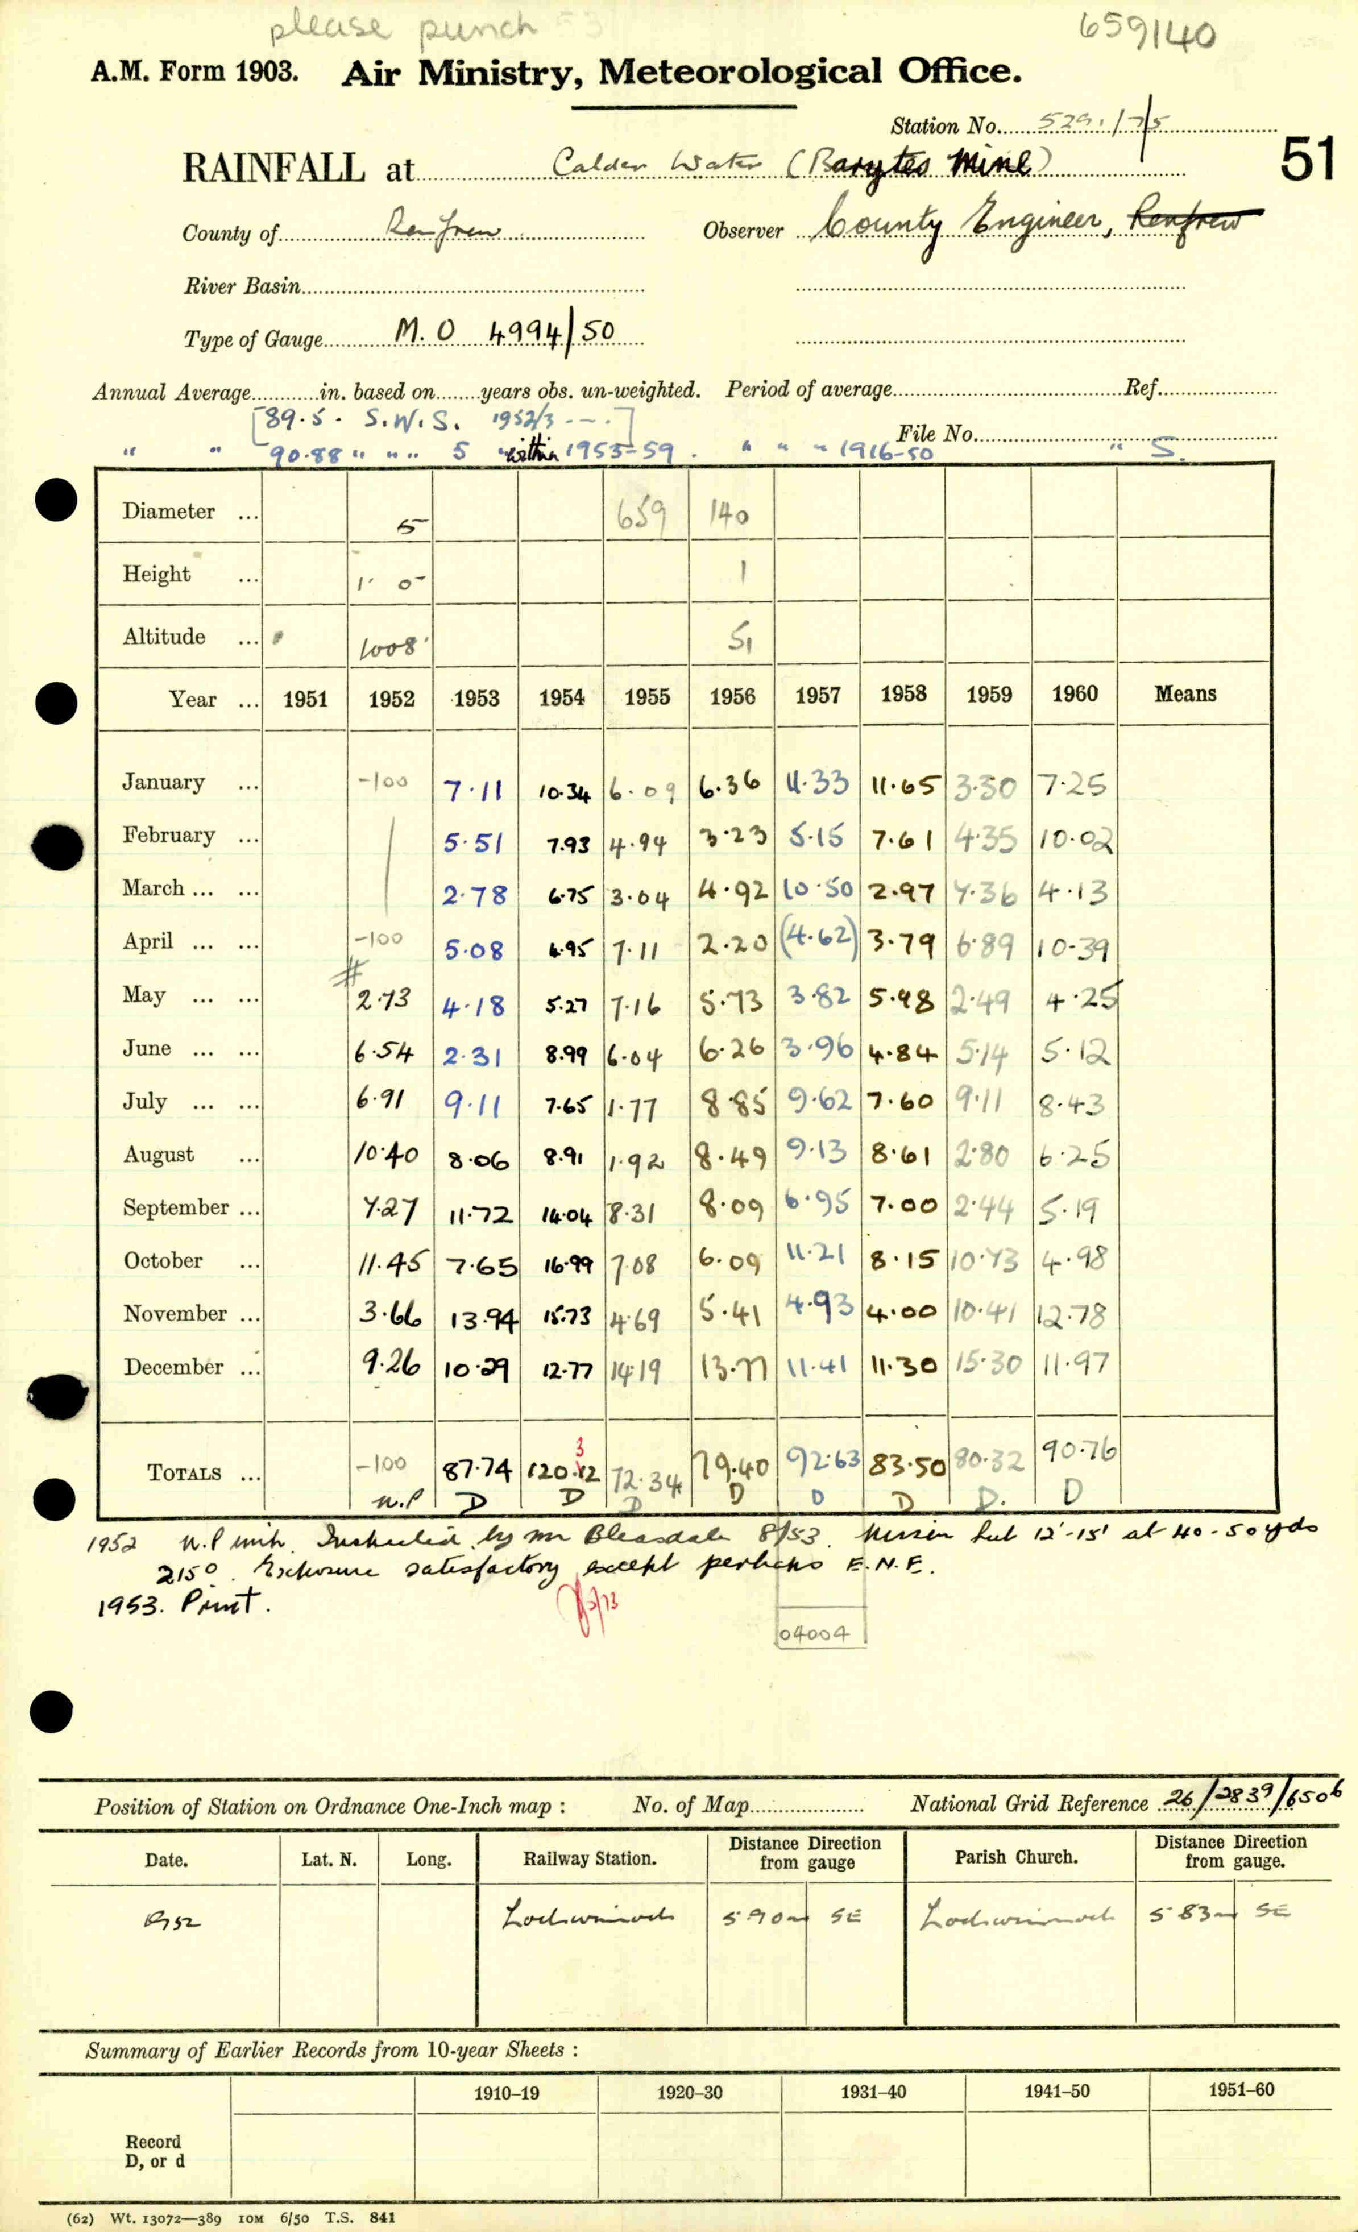 please punch 53
659140
A.M. Form 1903. Air Ministry, Meteorological Office.
Station No. 529.1/75
51
RAINFALL at Calder Water (Barytes Mine)
County of Renfrew Observer County Engineer, Renfrew
River Basin
Type of Gauge M.O 4994/50
Annual Average in. based on years obs. un-weighted. Period of average Ref.
[89.5. S.W.S. 1952/3 -.-.]
File No.
" " 90.88 " " " 5 " within 1953-59. " " " 1916-50 " S.
Diameter ... 5 659 140
Height ... 1' 0" 1
Altitude ... 1008' 51
Year ... 1951 1952 1953 1954 1955 1956 1957 1958 1959 1960 Means
January ... -100 7.11 10.34 6.09 6.36 11.33 11.65 3.50 7.25
February ... 5.51 7.93 4.94 3.23 5.15 7.61 4.35 10.02
March ... ... 2.78 6.75 3.04 4.92 10.50 2.97 7.36 4.13
April ... ... -100 5.08 4.95 7.11 2.20 (4.62) 3.79 6.89 10.39
#
May ... ... 2.73 4.18 5.27 7.16 5.73 3.82 5.98 2.49 4.25
June ... ... 6.54 2.31 8.99 6.04 6.26 3.96 4.84 5.14 5.12
July ... ... 6.91 9.11 7.65 1.77 8.85 9.62 7.60 9.11 8.43
August ... 10.40 8.06 8.91 1.92 8.49 9.13 8.61 2.80 6.25
September ... 7.27 11.72 14.04 8.31 8.09 6.95 7.00 2.44 5.19
October ... 11.45 7.65 16.99 7.08 6.09 11.21 8.15 10.43 4.98
November ... 3.66 13.94 15.73 4.69 5.41 4.93 4.00 10.41 12.78
December ... 9.26 10.29 12.77 14.19 13.77 11.41 11.30 15.30 11.97
3
TOTALS ... -100 87.74 120.12 72.34 79.40 92.63 83.50 80.32 90.76
N.P D D D D D D D. D
1952 N.P. Inspected by Mr Bleasdale 8/53. hut 12'-15' at 40-50 yds
215°. Exposure satisfactory except perhaps E.N.E.
1953. Print.
2/73
04004
Position of Station on Ordnance One-Inch map : No. of Map National Grid Reference 26/2839/6506
Date. Lat. N. Long. Railway Station. Distance Direction from gauge Parish Church. Distance Direction from gauge.
1952 Lochwinnoch 5.90m SE Lochwinnoch 5.83m SE
Summary of Earlier Records from 10-year Sheets :
1910–19 1920–30 1931–40 1941–50 1951–60
Record
D, or d
(62) Wt. 13072—389 10M 6/50 T.S. 841